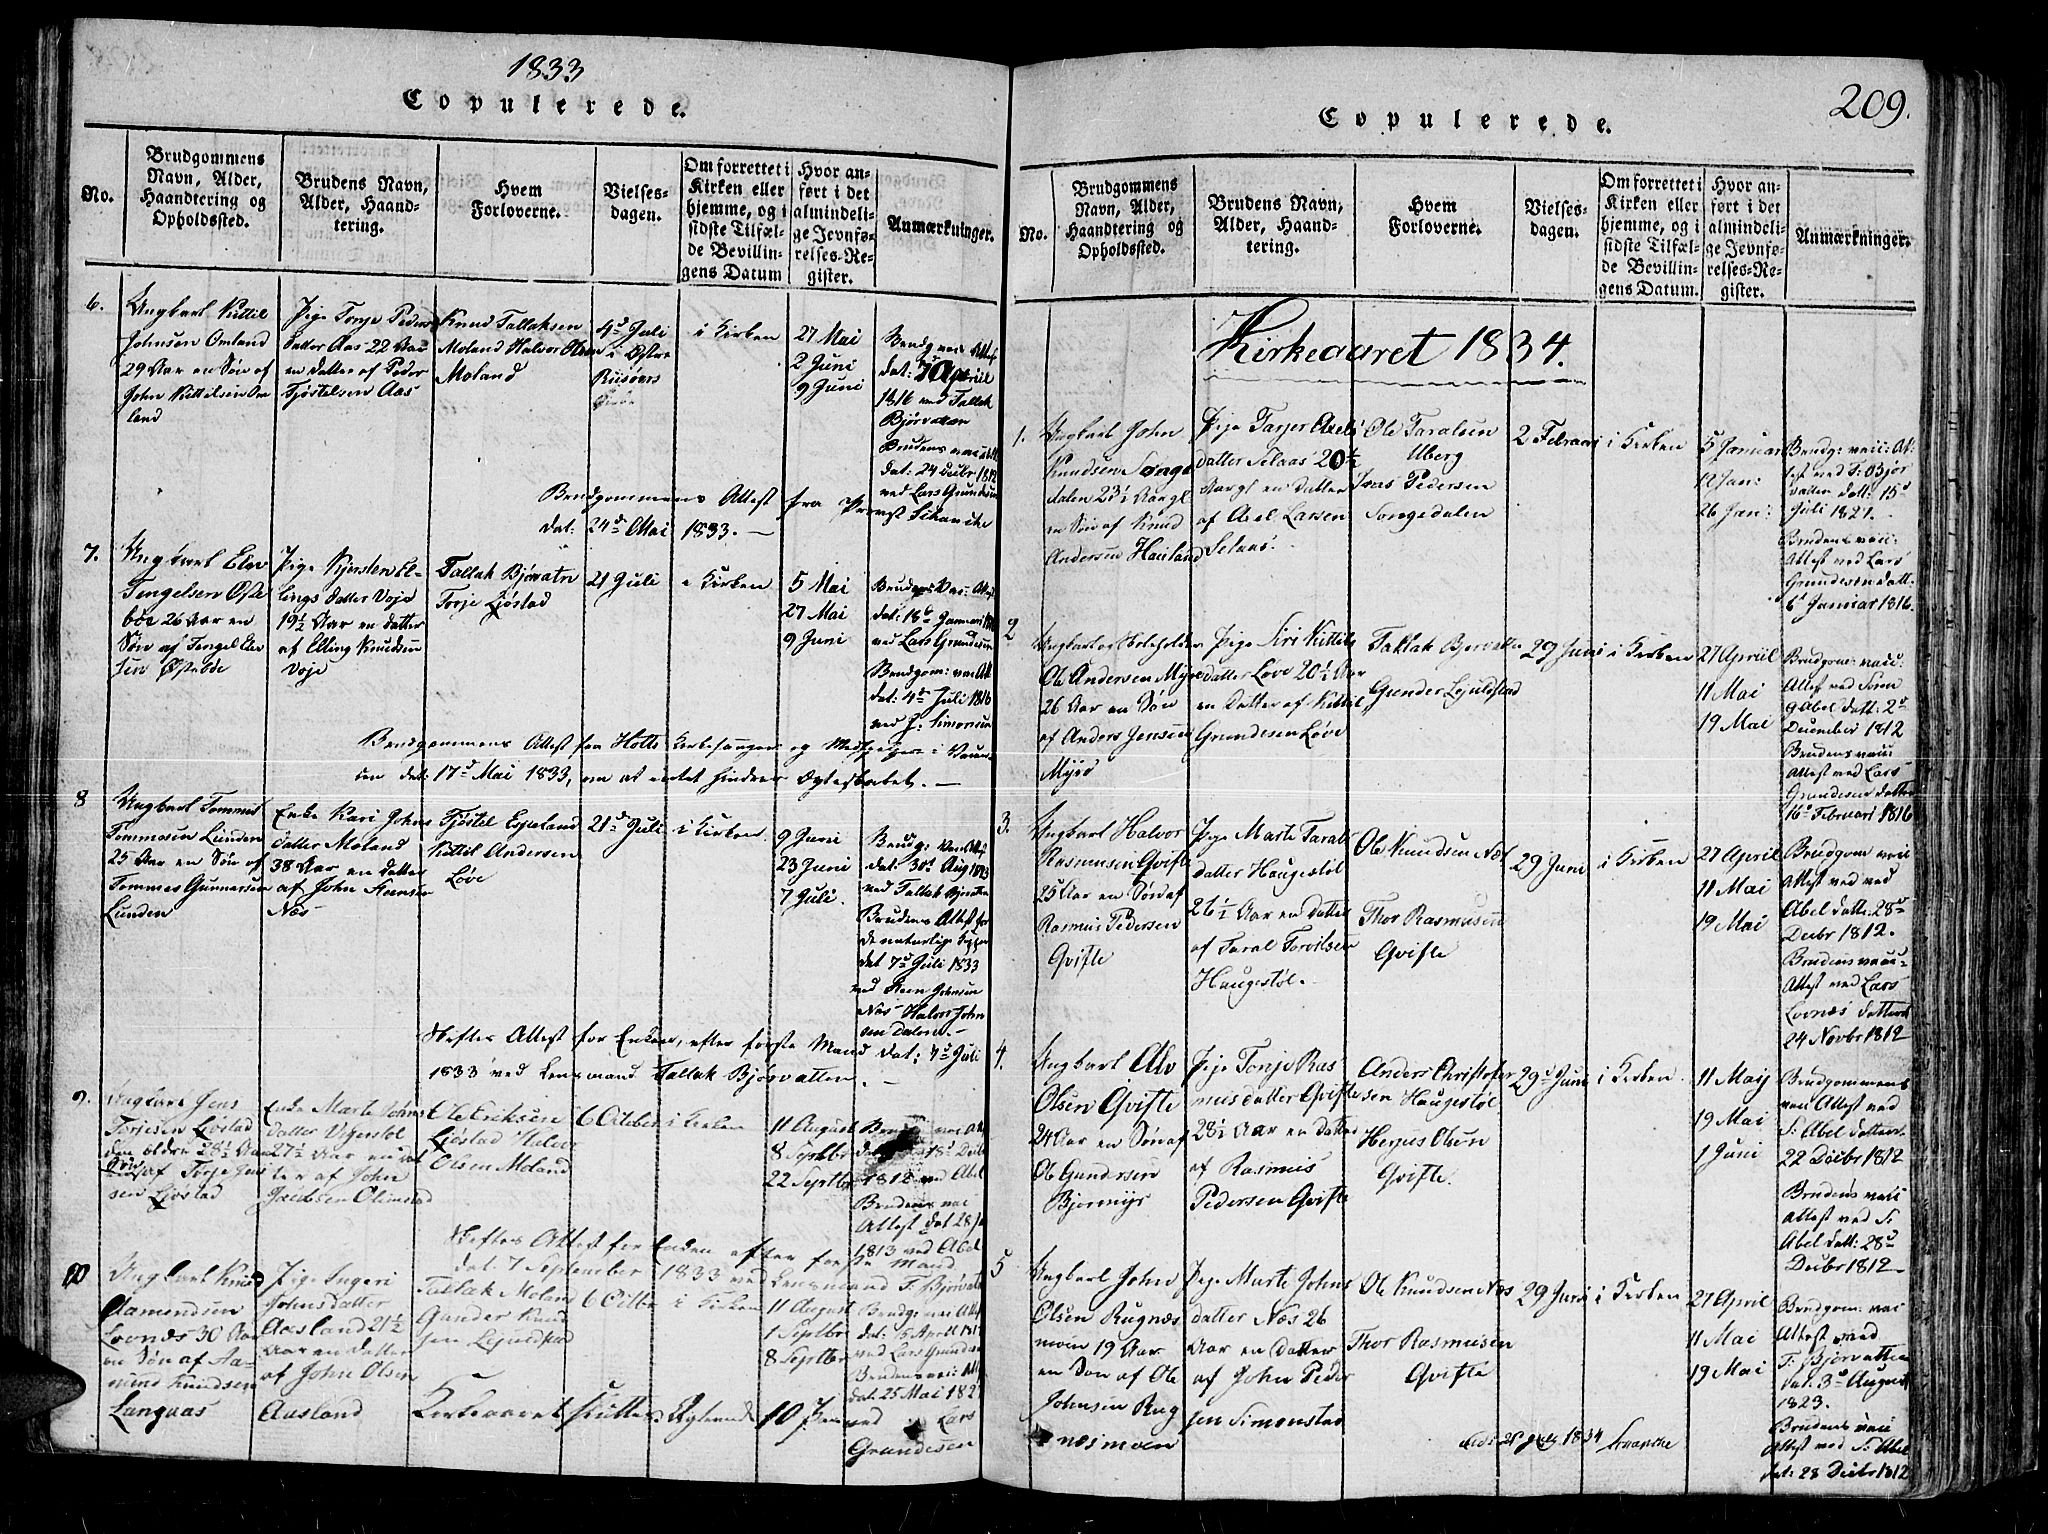 1833
Copulerede.
No.
Brudgommens
Navn, Alder,
Haandtering og
Opholdssted.
Brudens Navn,
Alder, Haand-
tering.
Hvem
Forloverne.
Vielses-
dagen.
Om forrettet i
Kirken eller
hjemme, og i
sidste Tilfæl-
de Bevillin-
gens Datum
Hvor an-
ført i det
almindeli-
ge Jevnfø-
relses-Re-
gister.
Anmærkninger.
6.
Ungkarl Kittil
Johnsen Omland
29 Aar en Søn af
John Kittilsen Om
land
Pige Tonje Peders
datter Aas 22 Aar
en datter af Peder
Tjøstelsen Aas
Knud Tallaksen
Moland Halvor Olsen
Moland
4de Juli
i Øster
Riisøers
i Kirken
27 Mai
2 Juni
9 Juni
Brudg: vac: Attest
dat: 30 Apriil
1816 ved Tallak
Bjørvatten
Brudens vac: Att
dat: 24 Decbr 1812
ved Lars Grundesen
Brudgommens Attest fra Provst Schanche
dat: 24de Mai 1833.
7.
Ungkarl Elev
Tengelsen Øste
bøe 26 Aar en
Søn af Tengel Elev
sen Østebøe
Pige Kjersten El-
lings datter Voje
19½ Aar en datter
af Elling Knudsen
Voje
Tallak Bjørvatn
Torje Ljøstad
21 Juli
i Kirken
5 Mai
27 Mai
9 Juni
Brudens Vac: Attest
dat: 18de Januari
ved Lars Grundesen
Brudgom: vac: Att
dat: 4de Juli 1816
ved J. Simonsen
Brudgommens Attest fra Holts Kirkesanger og Medhjelper i
dat: 17de Mai 1833, om at intet hindrer Ægteskabet.
8
Ungkarl Tommes
Tommesen Lunden
25 Aar en Søn af
Tommes Gunnarsen
Lunden
Enke Kari Johns
datter Moland
38 Aar en datter
af John Steensen
Næs
Tjøstel Espeland
Kittil Andersen
Løve
21de Juli
i Kirken
9 Juni
23 Juni
7 Juli.
Brudg: Vac: Attest
dat: 30te Aug 1823
ved Tallak Bjørvatten
Brudens Attest for
de naturlige Kopper
dat 7de Juli 1833
ved Steen Johnsen
Næs Halvor John
sen Dalen.
Skiftes Attest for Enken, efter første Mand dat: 4de Juli
1833 ved Lensmand Tallak Bjørvatten.
9.
Ungkarl Jens
Torjesen Ljøstad
den ældre 28½ Aar
Søn af Torje Jens
sen Ljøstad
Enke Marte Johns
datter Vigerstøl
27½ Aar en dat
ter af John
Jacobsen Olimstad
Ole Eriksen
Ljøstad Halvor
Olsen Moland
6 October
i Kirken
11 August
8 Septbr
22 Septbr
Brudg: vac: Att
dat 18de Decbr
1812 ved Abel
Brudens vac
Attest dat 28
1813 ved Abel
Skiftes Attest for Enken efter første Mand
dat: 7 September 1833 ved Lensmand T. Bjørvatn
10
Ungkarl Knud
Aamundsen
Lovnæs 30 Aar
en Søn af Aa-
mund Knudsen
Langaas
Pige Ingeri
Johnsdatter
Aasland 21½
Aar en datter
af John Olsen
Aasland
Tallak Moland
Gunder Knud
sen Lejulstad
6 Octbr
i Kirken
11 August
1 Septbr
8 Septbr
Brudg: vac: Att
dat: 15 April
ved Lars Grundesen
Brudens vac: Att
dat: 25 Mai
ved Lars
Grundesen
Kirkeaaret sluttes
10 Par
209.
Copulerede.
No.
Brudgommens
Navn, Alder,
Haandtering og
Opholdssted.
Brudens Navn,
Alder, Haand-
tering.
Hvem
Forloverne.
Vielses-
dagen.
Om forrettet i
Kirken eller
hjemme, og i
sidste Tilfæl-
de Bevillin-
gens Datum.
Hvor an-
ført i det
almindeli-
ge Jevnfø-
relses-Re-
gister.
Anmærkninger.
Kirkeaaret 1834.
1.
Ungkarl John
Knudsen Songe
dalen 23½ Aargl
en Søn af Knud
Andersen Hauland
Pige Tarjer Axels
datter Selaas 20½
Aargl en datter
af Axel Larsen
Selaas.
Ole Taralsen
Uberg
Ivar Pedersen
Songedalen
2 Februari
i Kirken
5 Januar
12 Jan:
26 Jan:
Brudg: vac: At:
test ved T: Bjør
vatten datt: 15de
Juli 1821.
Brudens vac:
Attest ved Lars
Grundesen datt:
6te Januar 1816.
2
Ungkarl
Ole Andersen Myre
26 Aar en Søn
af Anders Jensen
Myre
Pige Siri Kittils
datter Løve 20½ Aar
en Datter af Kittil
Grundesen Løve
Tallak Bjørvatten
Gunder Lejulstad
29 Juni
i Kirken
27 Apriil
11 Mai
19 Mai
Brudgom: vac:
Attest ved Søren
Abel datt: 2de
December 1812
Brudens vac:
Attest ved Lars
Grundesen datteret
16de Februari 1816
3.
Ungkarl Halvor
Rasmusen Qvifte
25 Aar en Søn af
Rasmus Pedersen
Qvifte
Pige Marte Tarals
datter Haugestøl
26½ Aar en Datter
af Taral Torvilsen
Haugestøl.
Ole Knudsen Næs
Thor Rasmusen
Qvifte
29 Juni
i Kirken
27 April
11 Mai
19 Mai
Brudgom vac:
Attest ved ved
Abel datt: 28de
Decbr 1812.
Brudens vac:
Attest ved Lars
Lovnæs datteret
24 Novbr 1812
4.
Ungkarl Alv
Olsen Qvifte
24 Aar en Søn af
Ole Gundersen
Bjørmyr
Pige Tonje Ras
musdatter Qvifte
28½ Aar en Datter
af Rasmus
Pedersen Qvifte
Anders Christofer
sen Haugestøl
Herjus Olsen
Qvifte.
29de Juni
i Kirken.
11 Maij
19 Mai
1 Juni
Brudgommens
vac Attest ved
S. Abel datteret
22 Decbr 1812
Brudens vac:
Attest ved S:
Abel datt: 28de
Decbr 1812
5
Ungkarl John
Olsen Rugnæs
moen 19 Aar
en Søn af Ole
Johnsen Rug
næsmoen
Pige Marte Johns
datter Næs 26
Aar en datter
af John Peder
sen Simonstad
Ole Knudsen Næs
Thor Rasmusen
Qvifte
29 Juni
i Kirken
27 April
11 Mai
19 Mai
Brudgom: vac
Attest ved
T. Bjørvatten
dat: 3de August
1823.
Brudens vac:
Attest ved S: Abel
dat: 28 Decbr 1812
1834 Schanche